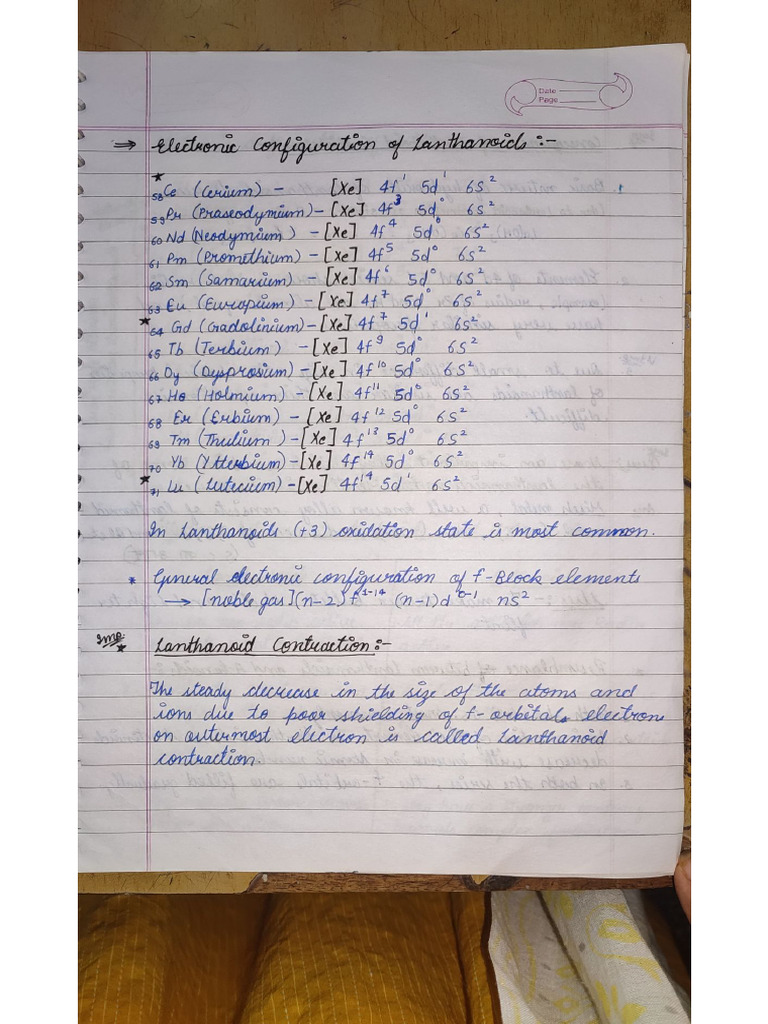 Date
Page
⇒ Electronic Configuration of Lanthanoids :-
* 58Ce (Cerium) - [Xe] 4f¹ 5d¹ 6s²
59Pr (Praseodymium) - [Xe] 4f³ 5d⁰ 6s²
60 Nd (Neodymium) - [Xe] 4f⁴ 5d⁰ 6s²
61 Pm (Promethium) - [Xe] 4f⁵ 5d⁰ 6s²
62 Sm (Samarium) - [Xe] 4f⁶ 5d⁰ 6s²
63 Eu (Europium) - [Xe] 4f⁷ 5d⁰ 6s²
* 64 Gd (Gadolinium) - [Xe] 4f⁷ 5d¹ 6s²
65 Tb (Terbium) - [Xe] 4f⁹ 5d⁰ 6s²
66 Dy (Dysprosium) - [Xe] 4f¹⁰ 5d⁰ 6s²
67 Ho (Holmium) - [Xe] 4f¹¹ 5d⁰ 6s²
68 Er (Erbium) - [Xe] 4f¹² 5d⁰ 6s²
69 Tm (Thulium) - [Xe] 4f¹³ 5d⁰ 6s²
70 Yb (Ytterbium) - [Xe] 4f¹⁴ 5d⁰ 6s²
* 71 Lu (Lutecium) - [Xe] 4f¹⁴ 5d¹ 6s²
In Lanthanoids (+3) oxidation state is most common.
* General electronic configuration of f-Block elements
→ [noble gas] (n-2)f¹⁻¹⁴ (n-1)d⁰⁻¹ ns²
Imp * Lanthanoid Contraction :-
The steady decrease in the size of the atoms and
ions due to poor shielding of f-orbitals electrons
on outermost electron is called Lanthanoid
contraction.